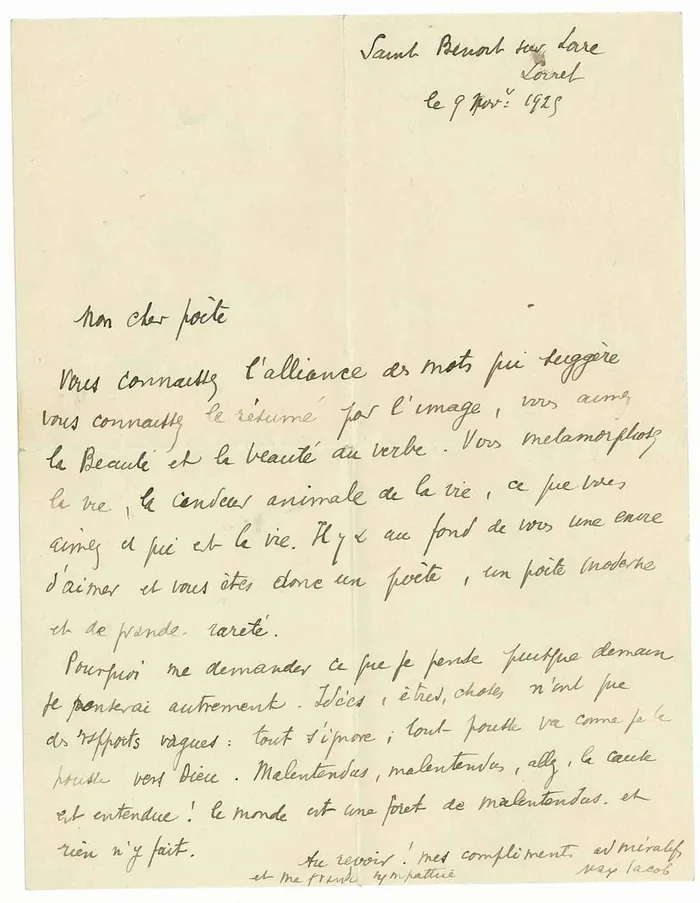 Saint Benoit sur Loire
Loiret
le 9 Nov. 1925
Mon cher poète
Vous connaissez l'alliance des mots qui suggère
vous connaissez le résumé par l'image, vous aimez
la Beauté et la beauté du verbe. Vous metamorphosez
la vie, la candeur animale de la vie, ce que vous
aimez et qui est la vie. Il y a au fond de vous une envie
d'aimer et vous êtes donc un poète, un poète moderne
et de grande rareté.
Pourquoi me demander ce que je pense puisque demain
je penserai autrement. Idées, êtres, choses n'ont que
des rapports vagues : tout s'ignore ; tout pousse va comme je le
pousse vers Dieu. Malentendus, malentendus, allez, la cause
est entendue ! le monde est une foret de malentendus. et
rien n'y fait.
Au revoir ! mes compliments admiratifs
et ma grande sympathie
Max Jacob